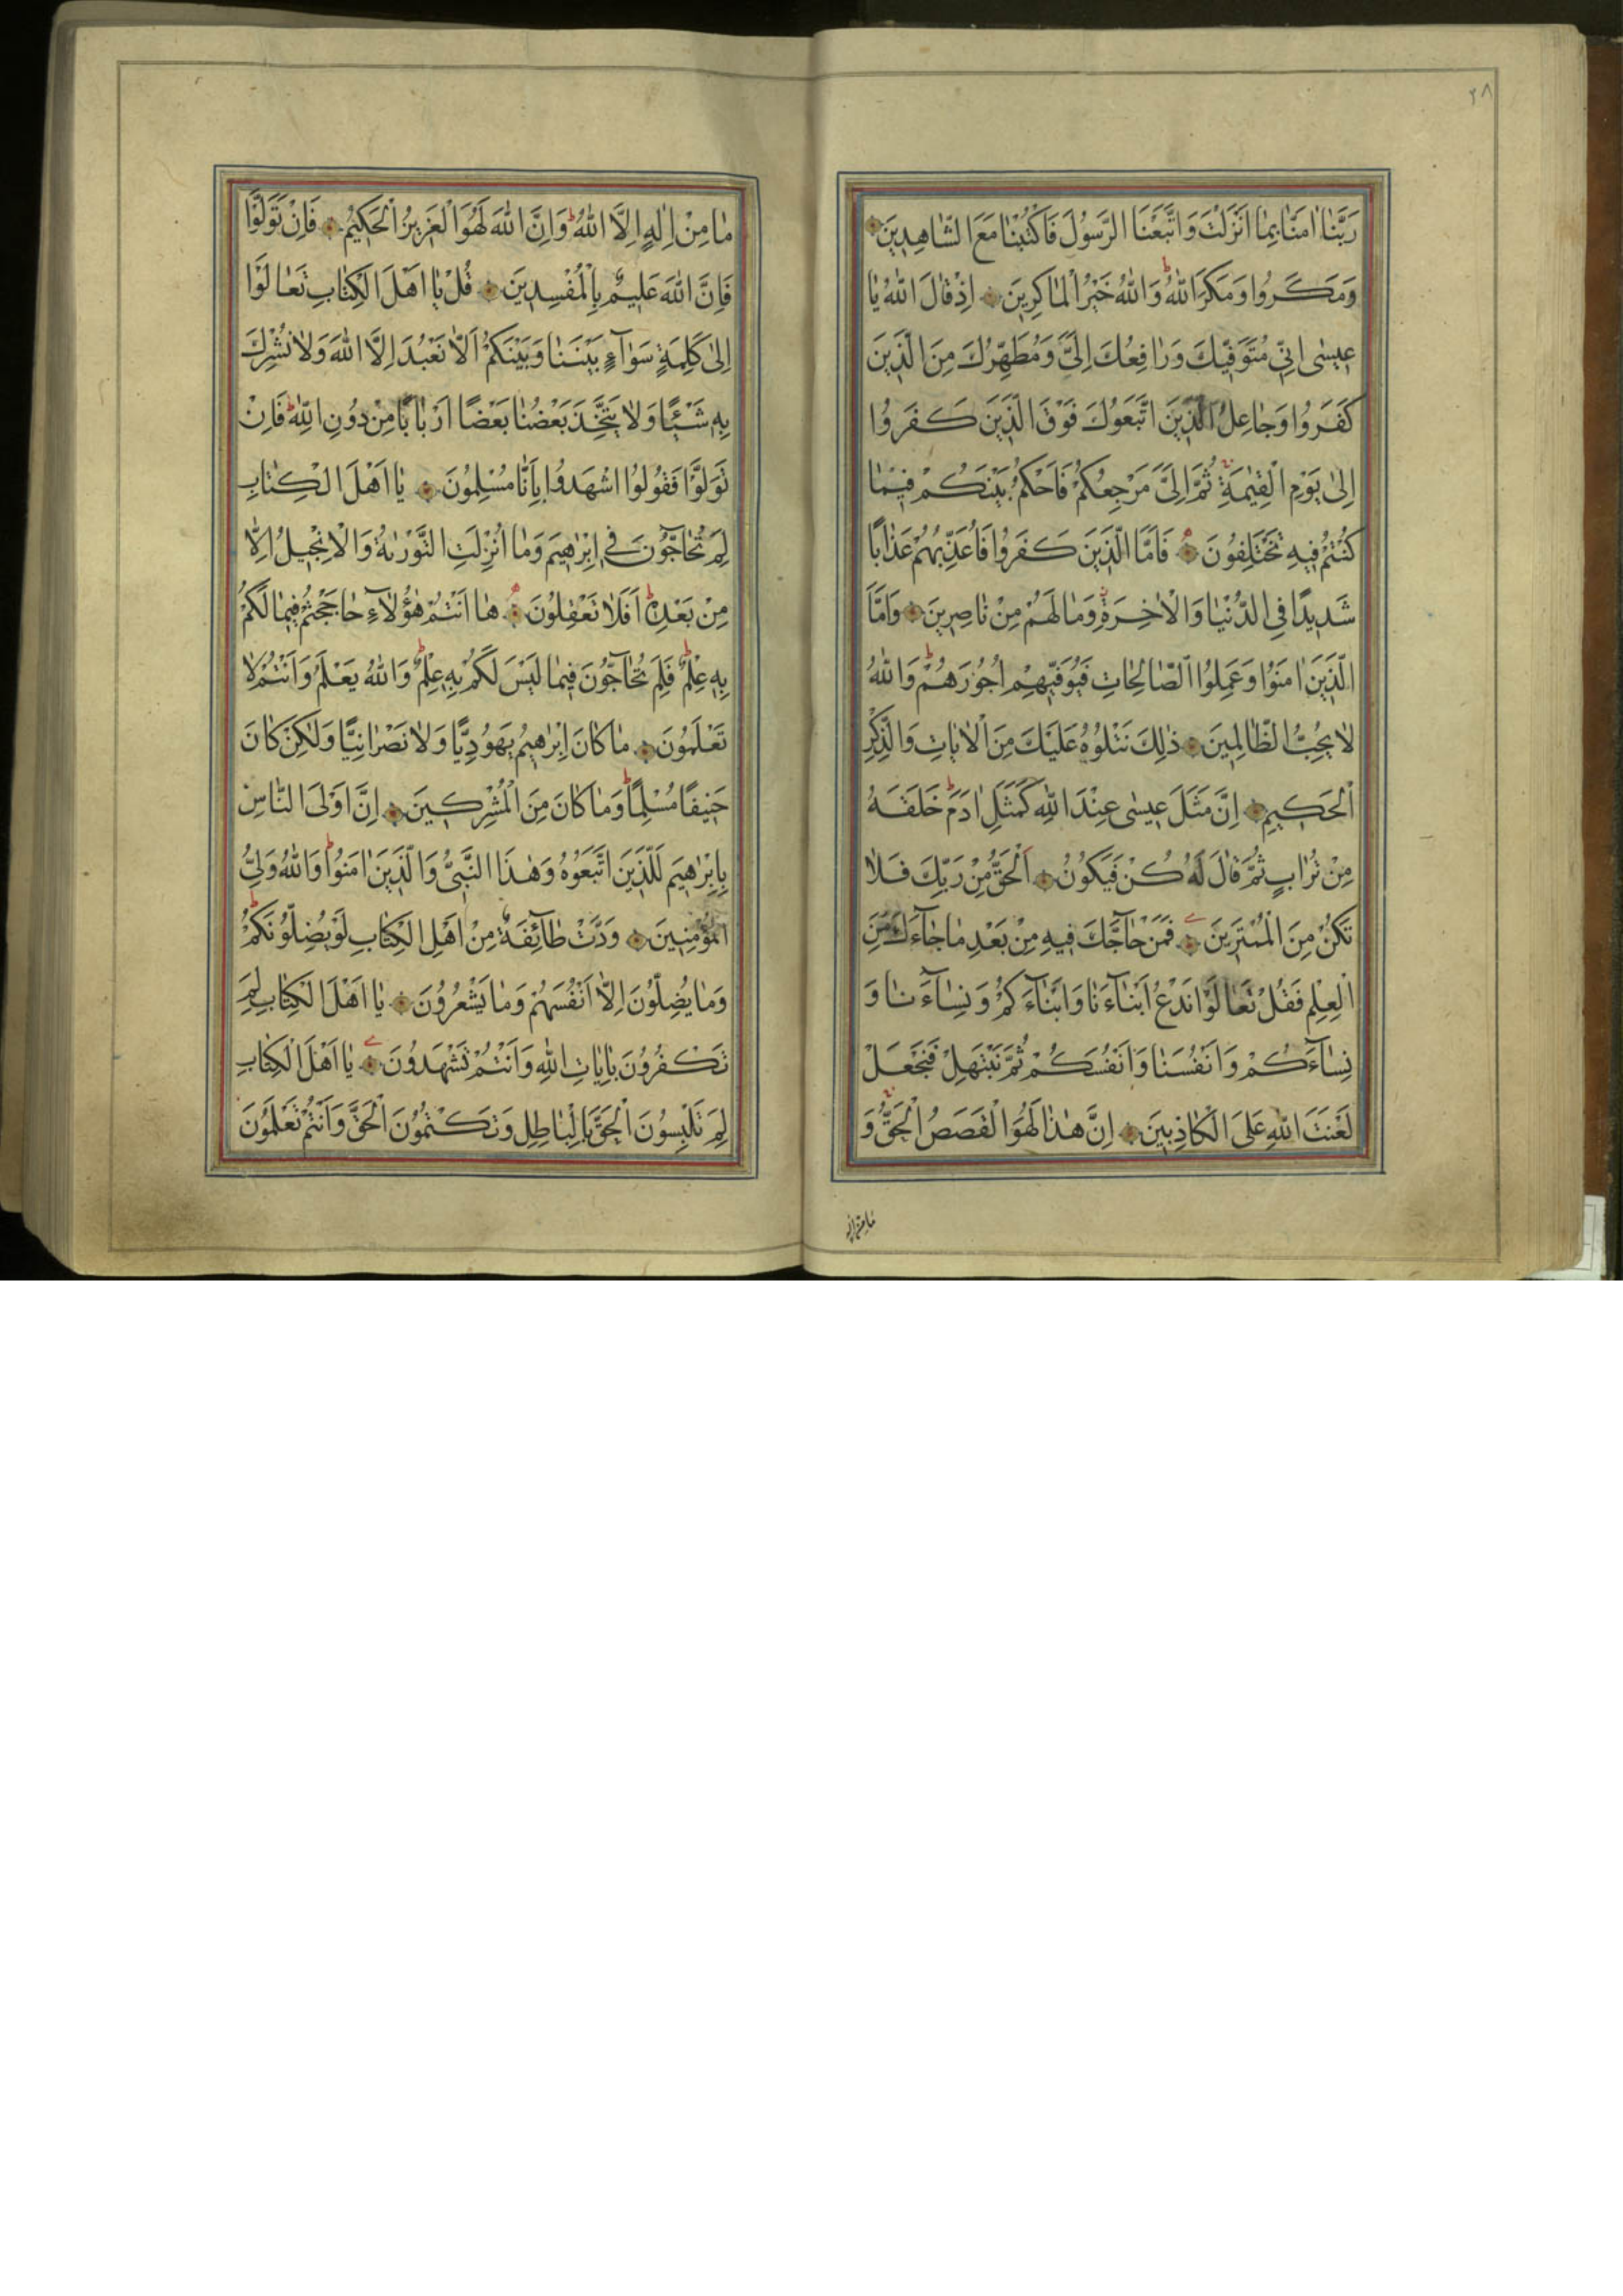 ٢٨
رَبَّنَا اٰمَنَّا بِمَا اَنْزَلْتَ وَاتَّبَعْنَا الرَّسُولَ فَاكْتُبْنَا مَعَ الشَّاهِدِينَ
وَمَكَرُوا وَمَكَرَ اللّٰهُ وَاللّٰهُ خَيْرُ الْمَاكِرِينَ اِذْ قَالَ اللّٰهُ يَا
عِيسٰى اِنِّي مُتَوَفِّيكَ وَرَافِعُكَ اِلَيَّ وَمُطَهِّرُكَ مِنَ الَّذِينَ
كَفَرُوا وَجَاعِلُ الَّذِينَ اتَّبَعُوكَ فَوْقَ الَّذِينَ كَفَرُوا
اِلٰى يَوْمِ الْقِيٰمَةِ ثُمَّ اِلَيَّ مَرْجِعُكُمْ فَاَحْكُمُ بَيْنَكُمْ فِيمَا
كُنْتُمْ فِيهِ تَخْتَلِفُونَ فَاَمَّا الَّذِينَ كَفَرُوا فَاُعَذِّبُهُمْ عَذَابًا
شَدِيدًا فِي الدُّنْيَا وَالْاٰخِرَةِ وَمَا لَهُمْ مِنْ نَاصِرِينَ وَاَمَّا
الَّذِينَ اٰمَنُوا وَعَمِلُوا الصَّالِحَاتِ فَيُوَفِّيهِمْ اُجُورَهُمْ وَاللّٰهُ
لَا يُحِبُّ الظَّالِمِينَ ذٰلِكَ نَتْلُوهُ عَلَيْكَ مِنَ الْاٰيَاتِ وَالذِّكْرِ
الْحَكِيمِ اِنَّ مَثَلَ عِيسٰى عِنْدَ اللّٰهِ كَمَثَلِ اٰدَمَ خَلَقَهُ
مِنْ تُرَابٍ ثُمَّ قَالَ لَهُ كُنْ فَيَكُونُ اَلْحَقُّ مِنْ رَبِّكَ فَلَا
تَكُنْ مِنَ الْمُمْتَرِينَ فَمَنْ حَاجَّكَ فِيهِ مِنْ بَعْدِ مَا جَآءَكَ مِنَ
الْعِلْمِ فَقُلْ تَعَالَوْا نَدْعُ اَبْنَآءَنَا وَاَبْنَآءَكُمْ وَنِسَآءَنَا وَ
نِسَآءَكُمْ وَاَنْفُسَنَا وَاَنْفُسَكُمْ ثُمَّ نَبْتَهِلْ فَنَجْعَلْ
لَعْنَتَ اللّٰهِ عَلَى الْكَاذِبِينَ اِنَّ هٰذَا لَهُوَ الْقَصَصُ الْحَقُّ وَ
مَا مِنْ اِلٰهٍ
مَا مِنْ اِلٰهٍ اِلَّا اللّٰهُ وَاِنَّ اللّٰهَ لَهُوَ الْعَزِيزُ الْحَكِيمُ فَاِنْ تَوَلَّوْا
فَاِنَّ اللّٰهَ عَلِيمٌ بِالْمُفْسِدِينَ قُلْ يَا اَهْلَ الْكِتَابِ تَعَالَوْا
اِلٰى كَلِمَةٍ سَوَآءٍ بَيْنَنَا وَبَيْنَكُمْ اَلَّا نَعْبُدَ اِلَّا اللّٰهَ وَلَا نُشْرِكَ
بِهِ شَيْئًا وَلَا يَتَّخِذَ بَعْضُنَا بَعْضًا اَرْبَابًا مِنْ دُونِ اللّٰهِ فَاِنْ
تَوَلَّوْا فَقُولُوا اشْهَدُوا بِاَنَّا مُسْلِمُونَ يَا اَهْلَ الْكِتَابِ
لِمَ تُحَآجُّونَ فِي اِبْرٰهِيمَ وَمَا اُنْزِلَتِ التَّوْرٰيةُ وَالْاِنْجِيلُ اِلَّا
مِنْ بَعْدِهِ اَفَلَا تَعْقِلُونَ هَا اَنْتُمْ هٰؤُلَآءِ حَاجَجْتُمْ فِيمَا لَكُمْ
بِهِ عِلْمٌ فَلِمَ تُحَآجُّونَ فِيمَا لَيْسَ لَكُمْ بِهِ عِلْمٌ وَاللّٰهُ يَعْلَمُ وَاَنْتُمْ لَا
تَعْلَمُونَ مَا كَانَ اِبْرٰهِيمُ يَهُودِيًّا وَلَا نَصْرَانِيًّا وَلٰكِنْ كَانَ
حَنِيفًا مُسْلِمًا وَمَا كَانَ مِنَ الْمُشْرِكِينَ اِنَّ اَوْلَى النَّاسِ
بِاِبْرٰهِيمَ لَلَّذِينَ اتَّبَعُوهُ وَهٰذَا النَّبِيُّ وَالَّذِينَ اٰمَنُوا وَاللّٰهُ وَلِيُّ
الْمُؤْمِنِينَ وَدَّتْ طَآئِفَةٌ مِنْ اَهْلِ الْكِتَابِ لَوْ يُضِلُّونَكُمْ
وَمَا يُضِلُّونَ اِلَّا اَنْفُسَهُمْ وَمَا يَشْعُرُونَ يَا اَهْلَ الْكِتَابِ لِمَ
تَكْفُرُونَ بِاٰيَاتِ اللّٰهِ وَاَنْتُمْ تَشْهَدُونَ يَا اَهْلَ الْكِتَابِ
لِمَ تَلْبِسُونَ الْحَقَّ بِالْبَاطِلِ وَتَكْتُمُونَ الْحَقَّ وَاَنْتُمْ تَعْلَمُونَ